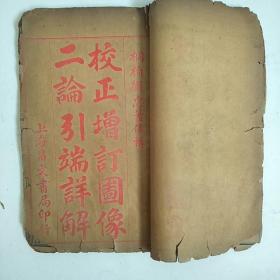 校正增訂圖像
二論引端詳解
上海文書局印行